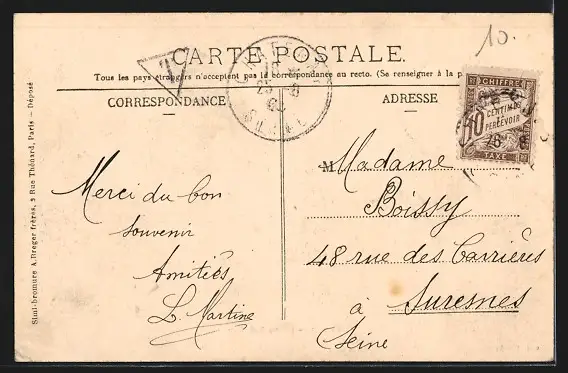 10.
CARTE POSTALE.
Tous les pays étrangers n'acceptent pas la correspondance au recto. (Se renseigner à la p
CORRESPONDANCE
ADRESSE
T
25 - 8
CHIFFRE
10 CENTIMES
À
PERCEVOIR
TAXE
Merci du bon
souvenir
Amitiés
L. Martine
M Madame
Boissy
48 rue des Carrières
à Suresnes
Seine
Simi-bromure A. Breger frères, 9 Rue Thénard, Paris — Déposé